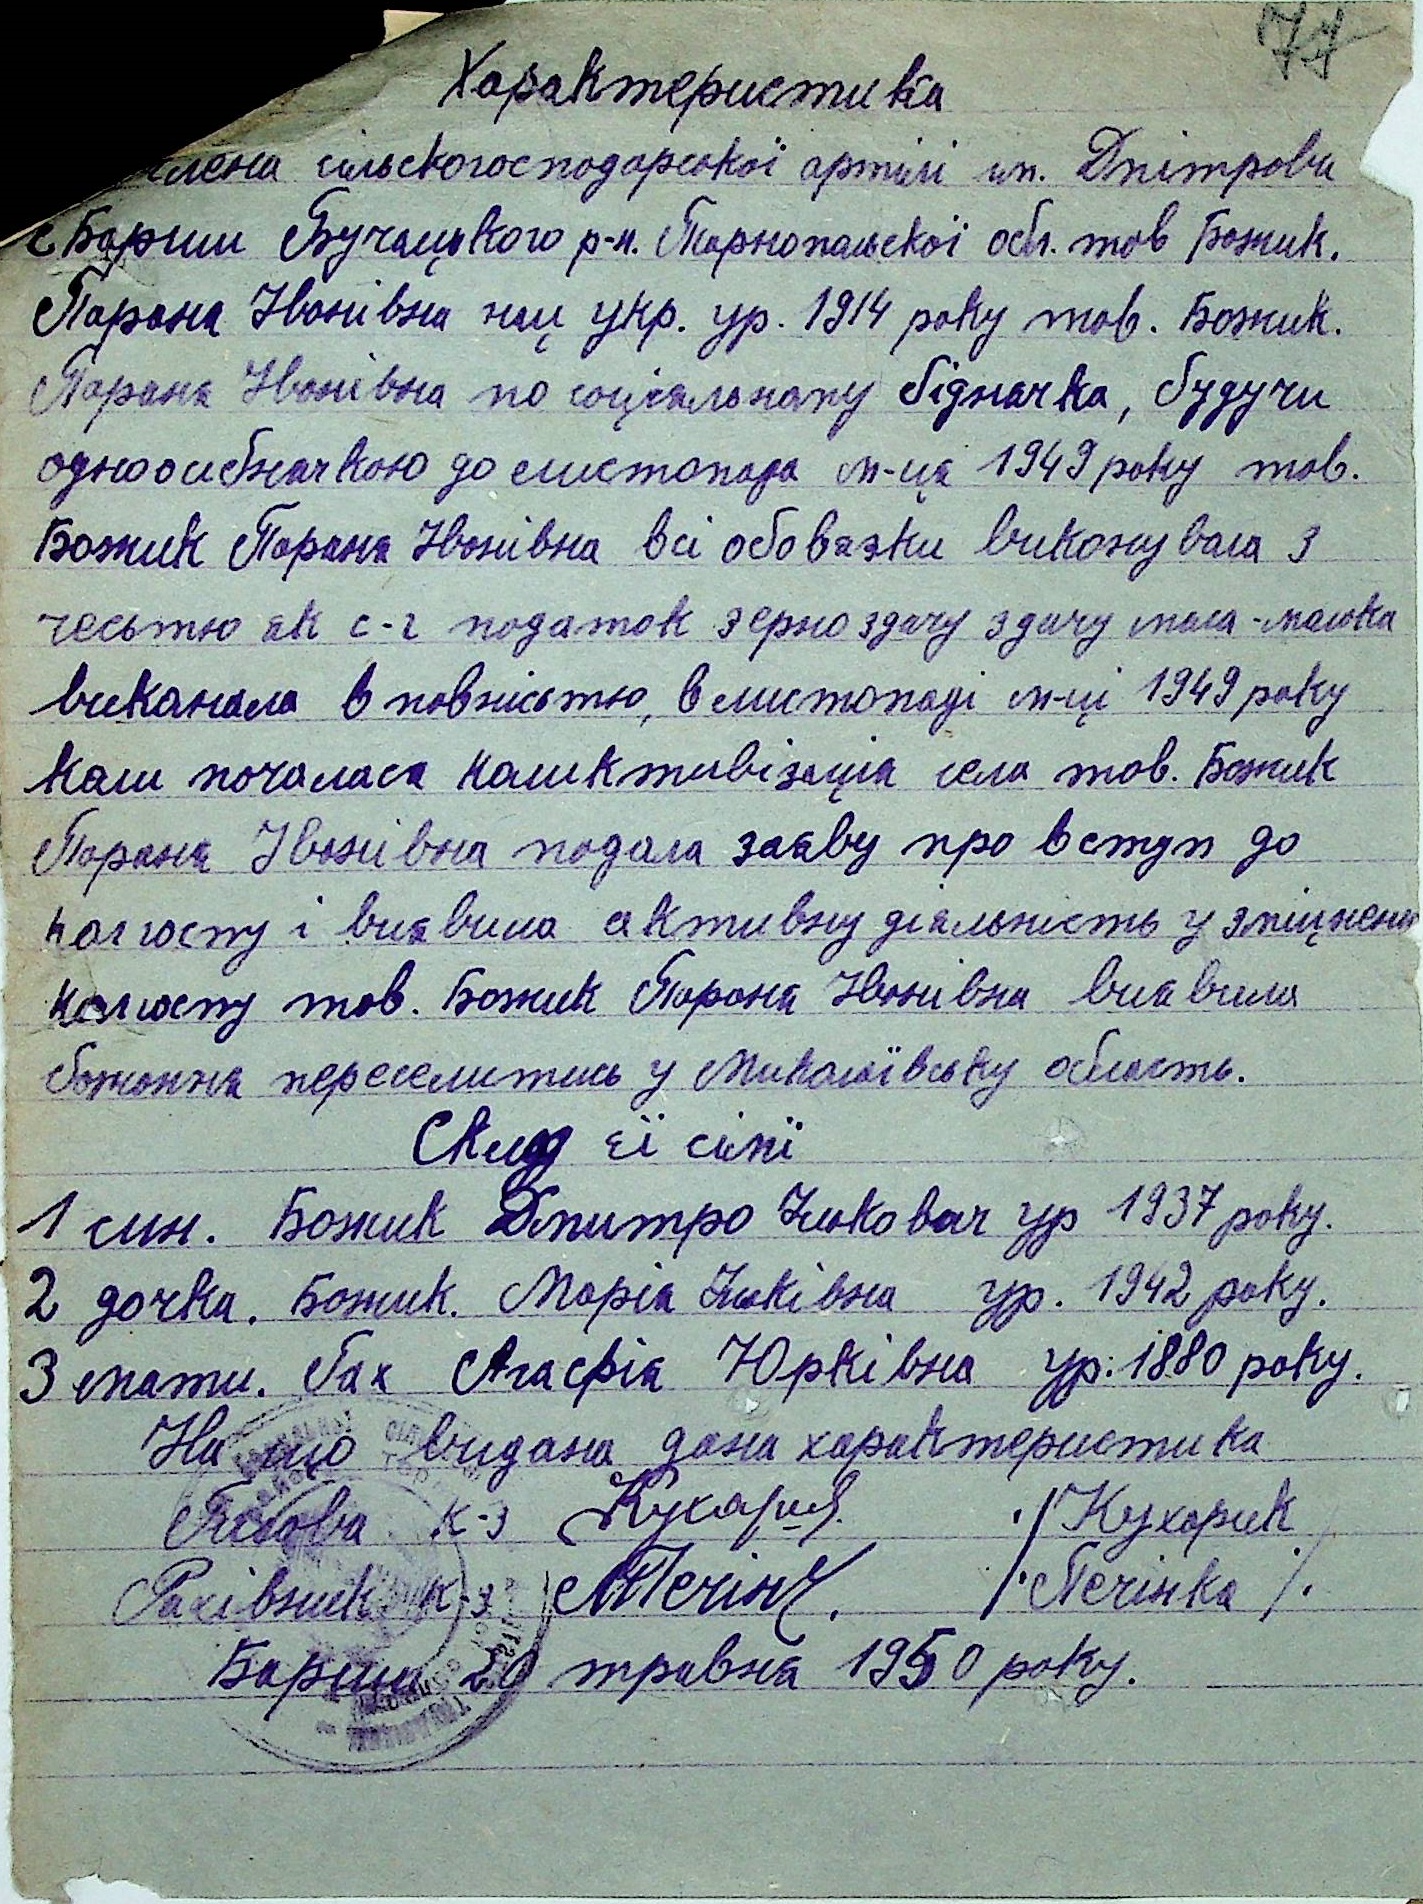 77
Характеристика
члена сільскогосподарської артілі ім. Дмітрова
с Бариш Бучацького р-н. Тарнопальскої обл. тов Божик.
Парана Іванівна нац укр. ур. 1914 року тов. Божик.
Парана Іванівна по соціяльному біднячка, будучи
одноосибнячкою до листопада м-ця 1949 року тов.
Божик Парана Іванівна всі обовязки виконувала з
чесьтю як с-г податок зерноздачу здачу мяса-малока
виканала в повністю, в листопаді м-ці 1949 року
кали почалася каликтивізація села тов. Божик
Парана Іванівна подала заяву про вступ до
калгоспу і виявила активну діяльність у зміцнені
калгоспу тов. Божик Парана Іванівна виявила
божання переселитись у Миколаївську область.
Склад її сімї
1 син. Божик Дмитро Ількович ур 1937 року.
2 дочка. Божик. Марія Ільківна ур. 1942 року.
3 мати. Бах Агафія Юрківна ур. 1880 року.
На що видана дана характеристика
Голова к-з Кухарик /Кухарик
Рахівник к-з. Печінка /Печінка/.
Бариш 20 травня 1950 року.